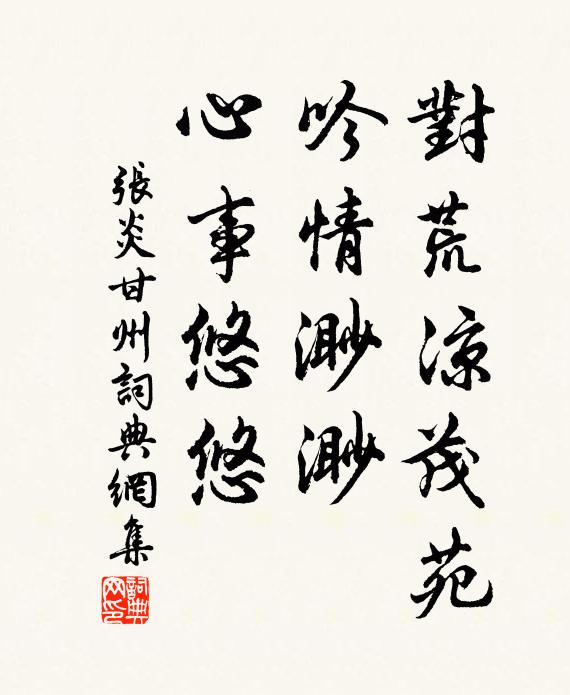 對荒涼茂苑
吟情渺渺
心事悠悠
張炎甘州詞典網集
詞典网印